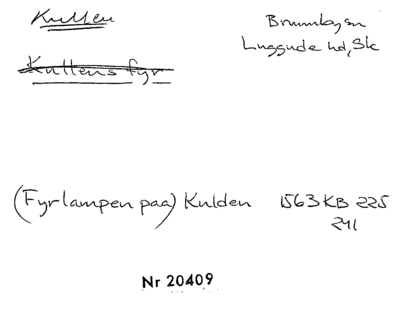 Kullen
Brunnby sn
Luggude hd, Sk
Kullens fyr
(Fyrlampen paa) Kulden 1563 KB 225
241
Nr 20409